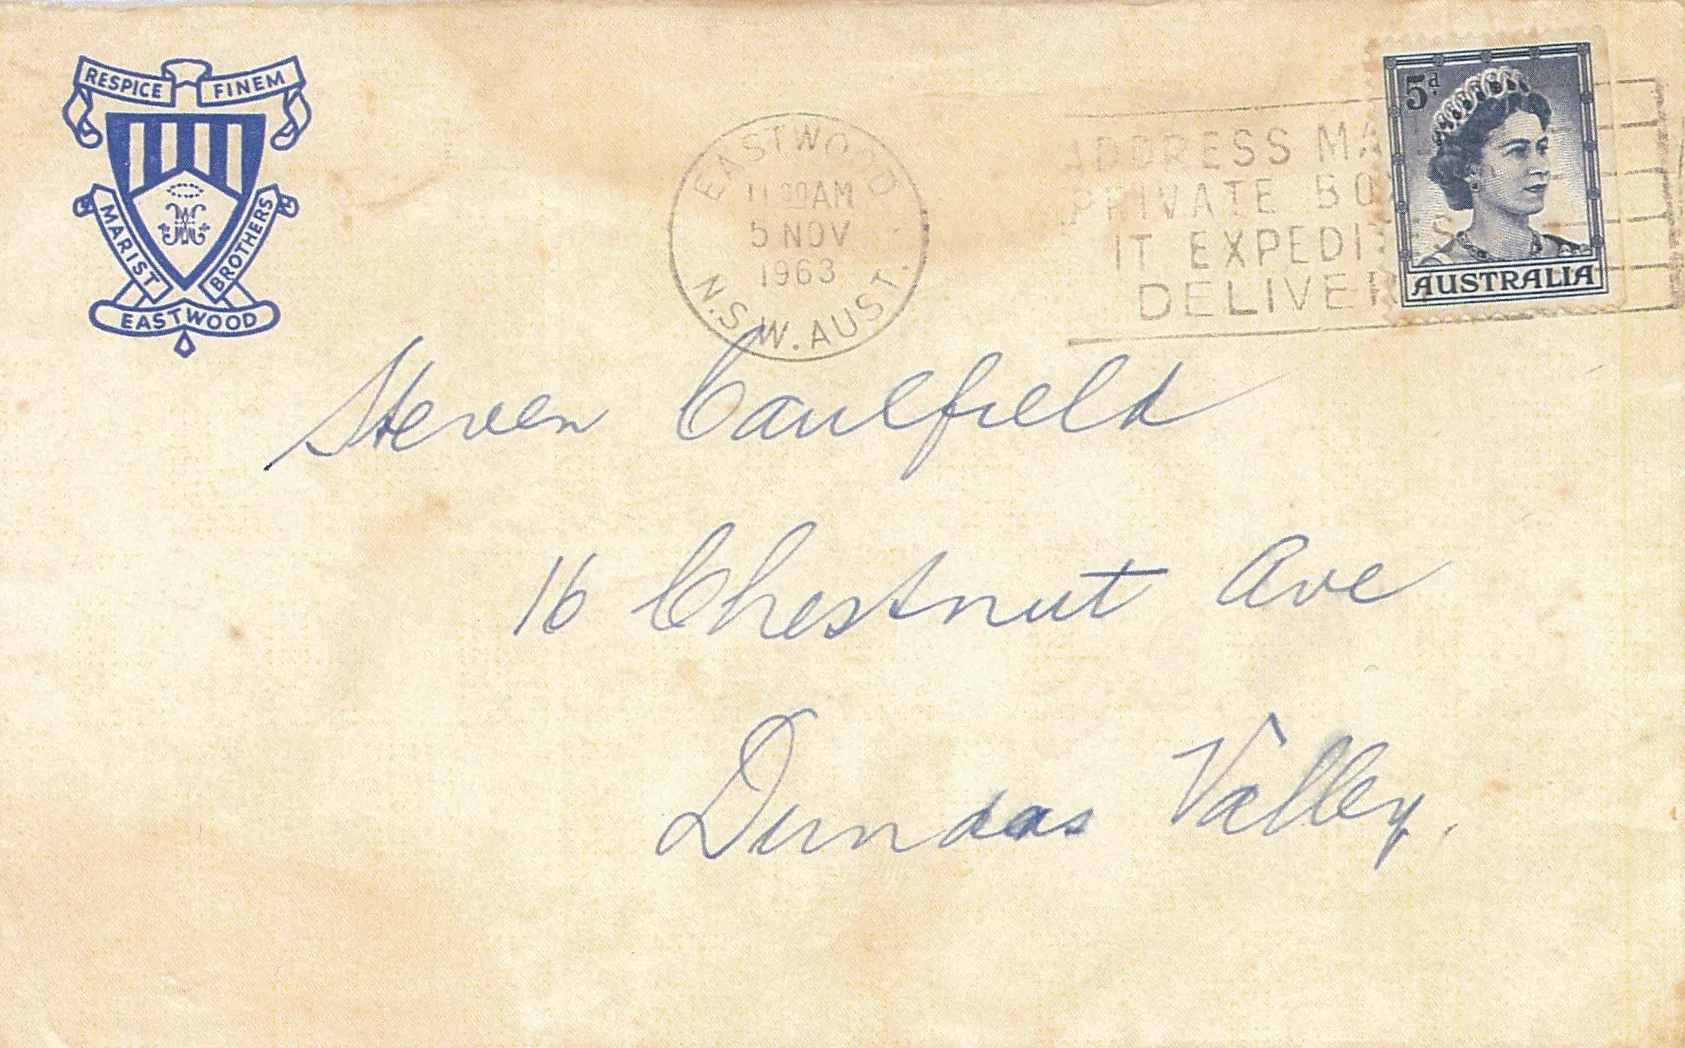 RESPICE FINEM
MARIST BROTHERS
EASTWOOD
EASTWOOD
11 30 AM
5 NOV
1963
N.S.W. AUST.
ADDRESS MA
PRIVATE BO
IT EXPEDITES
DELIVER
5d
AUSTRALIA
Steven Caulfield
16 Chestnut Ave
Dundas Valley.